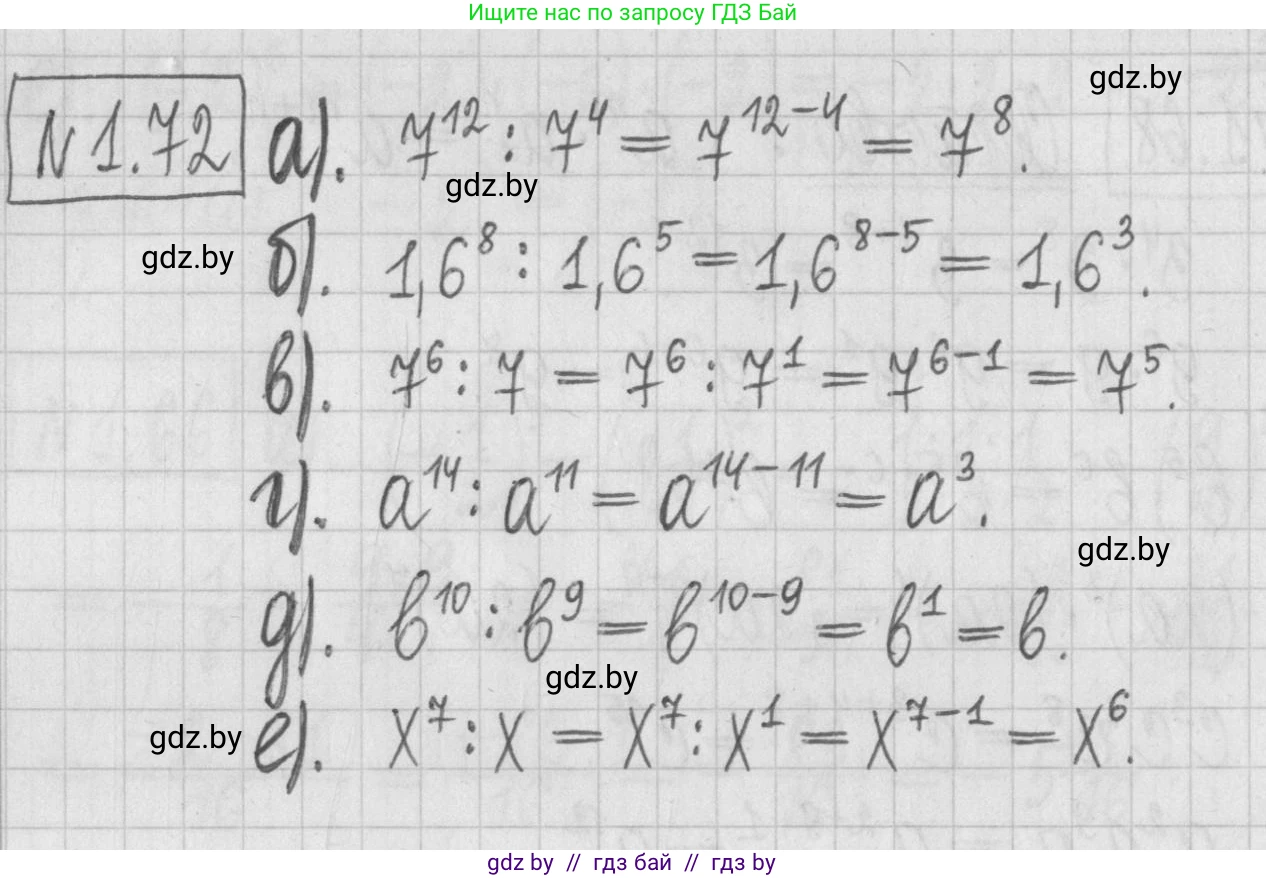 Ищите нас по запросу ГДЗ Бай
gdz.by
N 1.72 а). 7¹² : 7⁴ = 7¹²⁻⁴ = 7⁸.
gdz.by
gdz.by б). 1,6⁸ : 1,6⁵ = 1,6⁸⁻⁵ = 1,6³.
в). 7⁶ : 7 = 7⁶ : 7¹ = 7⁶⁻¹ = 7⁵.
г). a¹⁴ : a¹¹ = a¹⁴⁻¹¹ = a³.
gdz.by
д). b¹⁰ : b⁹ = b¹⁰⁻⁹ = b¹ = b.
gdz.by
gdz.by е). x⁷ : x = x⁷ : x¹ = x⁷⁻¹ = x⁶.
gdz by // гдз бай // гдз by